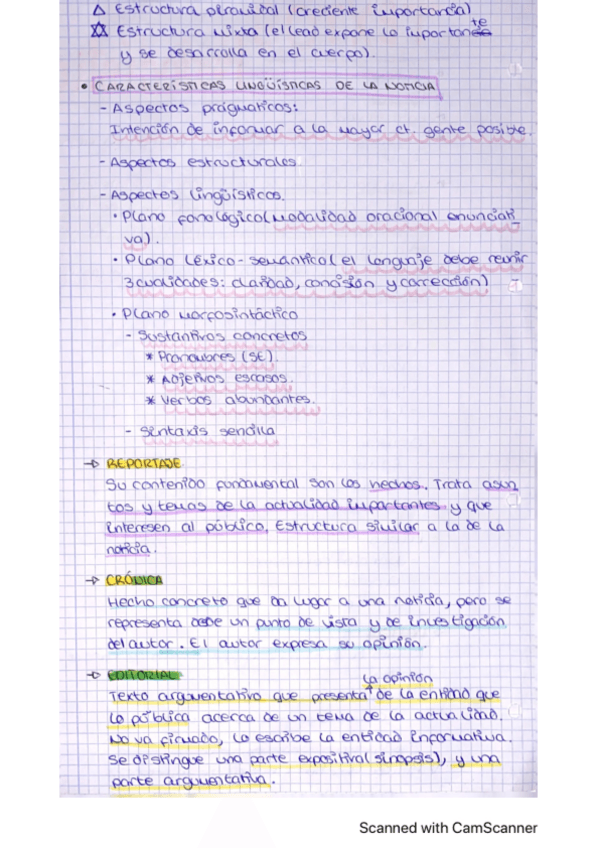 △ Estructura piramidal (creciente importancia)
✡ Estructura mixta (el lead expone lo importante
y se desarrolla en el cuerpo).
• CARACTERÍSTICAS LINGÜÍSTICAS DE LA NOTICIA
- Aspectos pragmáticos:
Intención de informar a la mayor ct. gente posible.
- Aspectos estructurales
- Aspectos lingüísticos.
• Plano fonológico (modalidad oracional enunciati_
va).
• Plano léxico-semántico (el lenguaje debe reunir
3 cualidades: claridad, concisión y corrección)
• Plano morfosintáctico
- Sustantivos concretos
* Pronombres (SE).
* Adjetivos escasos.
* Verbos abundantes.
- Sintaxis sencilla
→ REPORTAJE
Su contenido fundamental son los hechos. Trata asun
tos y temas de la actualidad importantes y que
interesen al público. Estructura similar a la de la
noticia.
→ CRÓNICA
Hecho concreto que da lugar a una noticia, pero se
representa desde un punto de vista y de investigación
del autor. El autor expresa su opinión.
→ EDITORIAL
Texto argumentativo que presenta la opinión de la entidad que
lo pública acerca de un tema de la actualidad.
No va firmado, lo escribe la entidad informativa.
Se distingue una parte expositiva (sinopsis), y una
parte argumentativa.
Scanned with CamScanner